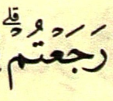 رَجَعْتُمْ ۗ